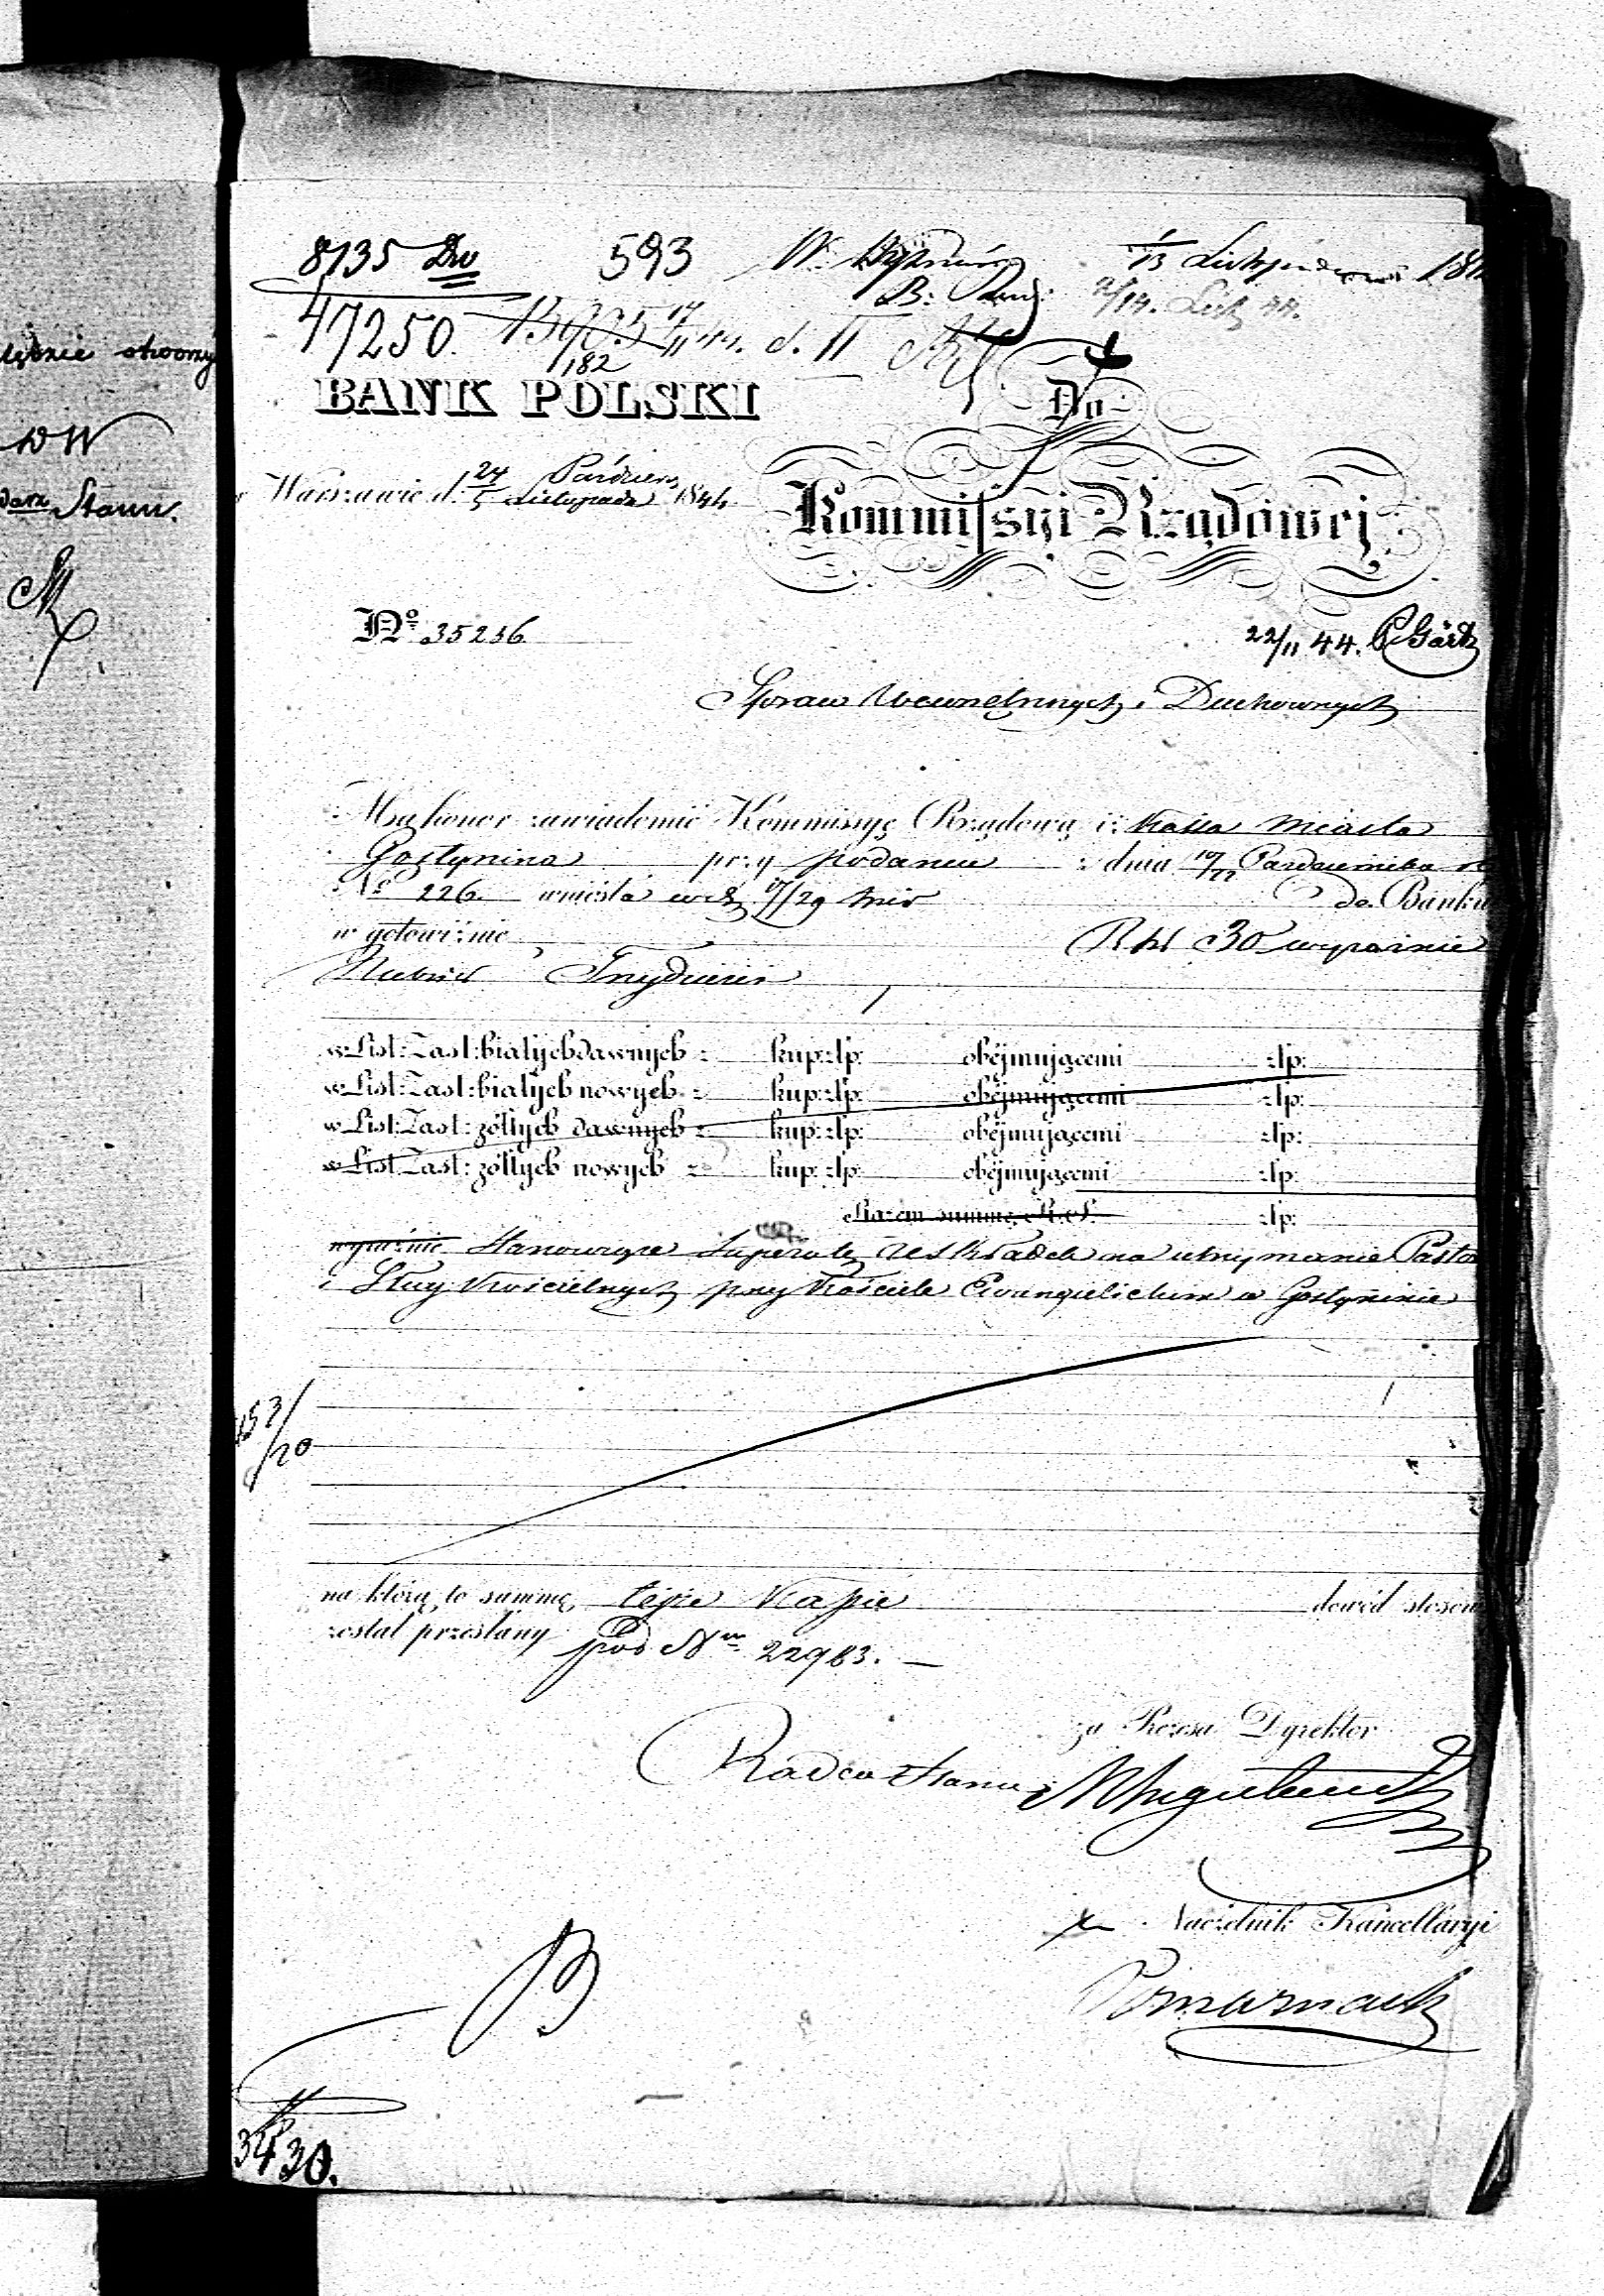 lędzie otworzy
W
Stanu.
8135
593
W
13 Listopada 184
47250.
13925 17/11 44. d. II
2/14. List. 44.
182
BANK POLSKI
Do
w Warszawie d. 24/5 Paździer. Listopada 1844
Kommissyi Rządowej
No. 35236
22/11 44.
Spraw Wewnętrznych i Duchownych
Ma honor zawiadomić Kommissyę Rządową iż Kassa Miasta
Gostynina przy podaniu z dnia 10/22 Października
No 226. wniosła w d. 17/29 do Banku
w gotowiźnie Rbl 30 wyraźnie
Rubli Trzydzieści
w List: Zast: białych dawnych z kup: złp: obejmującemi złp:
w List: Zast: białych nowych z kup: złp: obejmującemi złp:
w List: Zast: żółtych dawnych z kup: złp: obejmującemi złp:
w List: Zast: żółtych nowych z kup: złp: obejmującemi złp:
Razem summę R. S. złp:
wyraźnie Stanowiące na utrzymanie Pasto
i Sług Kościelnych przy Kościele Ewangielickim w Gostyninie
153/
/20
na którą to summę tejże Kassie dowód stosow
został przesłany pod Nrm 22983. —
za Prezesa Dyrektor
Radca Stanu
Naczelnik Kancellaryi
B
3430.